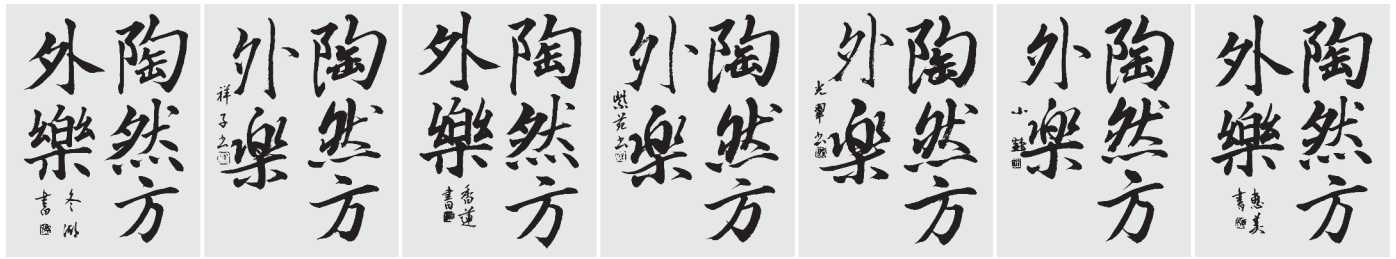 陶然方
外樂
冬湖
書
陶然方
外楽
祥子書
陶然方
外樂
香蓮
書
陶然方
外楽
紫苑書
陶然方
外楽
光翠書
陶然方
外楽
陶然方
外樂
惠美
書